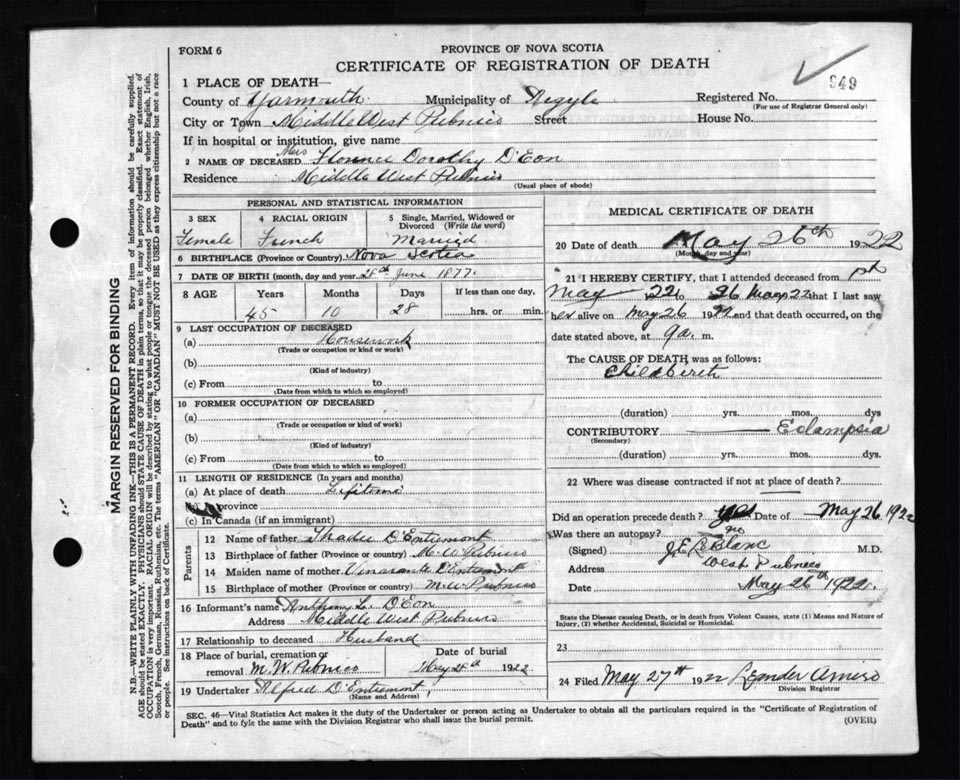 FORM 6
PROVINCE OF NOVA SCOTIA
CERTIFICATE OF REGISTRATION OF DEATH
949
1 PLACE OF DEATH—
County of Yarmouth Municipality of Argyle Registered No.
(For use of Registrar General only)
City or Town Middle West Pubnico Street House No.
If in hospital or institution, give name
2 NAME OF DECEASED Mrs Dorothy D'Eon
Residence Middle West Pubnico
(Usual place of abode)
PERSONAL AND STATISTICAL INFORMATION
3 SEX 4 RACIAL ORIGIN 5 Single, Married, Widowed or Divorced (Write the word)
Female French Married
6 BIRTHPLACE (Province or Country) Nova Scotia
7 DATE OF BIRTH (month, day and year) 28th June 1877.
8 AGE Years Months Days If less than one day,
45 10 28 hrs. or min.
9 LAST OCCUPATION OF DECEASED
(a) Housework
(Trade or occupation or kind or work)
(b)
(Kind of industry)
(c) From to
(Date from which to which so employed)
10 FORMER OCCUPATION OF DECEASED
(a)
(Trade or occupation or kind of work)
(b)
(Kind of industry)
(c) From to
(Date from which to which so employed)
11 LENGTH OF RESIDENCE (In years and months)
(a) At place of death Lifetime
(c) In Canada (if an immigrant)
Parents
12 Name of father D'Entremont
13 Birthplace of father (Province or country) M. W Pubnico
14 Maiden name of mother D'Entremont
15 Birthplace of mother (Province or country) M. W Pubnico
16 Informant's name Anthony L. D'Eon
Address Middle West Pubnico
17 Relationship to deceased Husband
18 Place of burial, cremation or removal M. W. Pubnico
Date of burial
May 28th 1922
19 Undertaker Alfred D'Entremont,
(Name and Address)
MEDICAL CERTIFICATE OF DEATH
20 Date of death May 26th 1922
(Month, day and year)
21 I HEREBY CERTIFY, that I attended deceased from
May 22 to 26 May 22 that I last saw
her alive on May 26 1922 and that death occurred, on the
date stated above, at 9 a. m.
The CAUSE OF DEATH was as follows:
Childbirth
(duration) yrs. mos. dys
CONTRIBUTORY Eclampsia
(Secondary)
(duration) yrs. mos. dys.
22 Where was disease contracted if not at place of death?
Did an operation precede death? yes Date of May 26 1922
Was there an autopsy?
(Signed) J. E. LeBlanc M.D.
Address West Pubnico
Date May 26th 1922.
State the Disease causing Death, or in death from Violent Causes, state (1) Means and Nature of Injury, (2) whether Accidental, Suicidal or Homicidal.
23
24 Filed May 27th 1922 Leander
Division Registrar
SEC. 46—Vital Statistics Act makes it the duty of the Undertaker or person acting as Undertaker to obtain all the particulars required in the "Certificate of Registration of
Death" and to fyle the same with the Division Registrar who shall issue the burial permit.
(OVER)
MARGIN RESERVED FOR BINDING
N.B.—WRITE PLAINLY WITH UNFADING INK—THIS IS A PERMANENT RECORD. Every item of information should be carefully supplied.
AGE should be stated EXACTLY. PHYSICIANS should STATE CAUSE OF DEATH in plain terms, so that it may be properly classified. Exact statement of
OCCUPATION is very important. RACIAL ORIGIN will be described by stating to what people or tongue the deceased person belonged whether English, Irish,
Scotch, French, German, Russian, Ruthenian, etc. The terms "AMERICAN" OR "CANADIAN" MUST NOT BE USED as they express citizenship but not a race
or people. See instructions on back of Certificate.